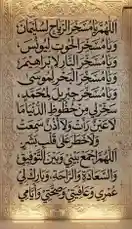 اللهم يا مسخر الرياح لسليمان
ويا مسخر الحوت ليونس
ويا مسخر النار لإبراهيم
ويا مسخر البحر لموسى
ويا مسخر جبريل لمحمد
سخر لي من حظوظ الدنيا ما
لا عين رأت ولا أذن سمعت
ولا خطر على قلب بشر
اللهم اجمع بيني وبين التوفيق
والسعادة والراحة، وبارك لي
عمري وعافيتي وصحتي وأيامي